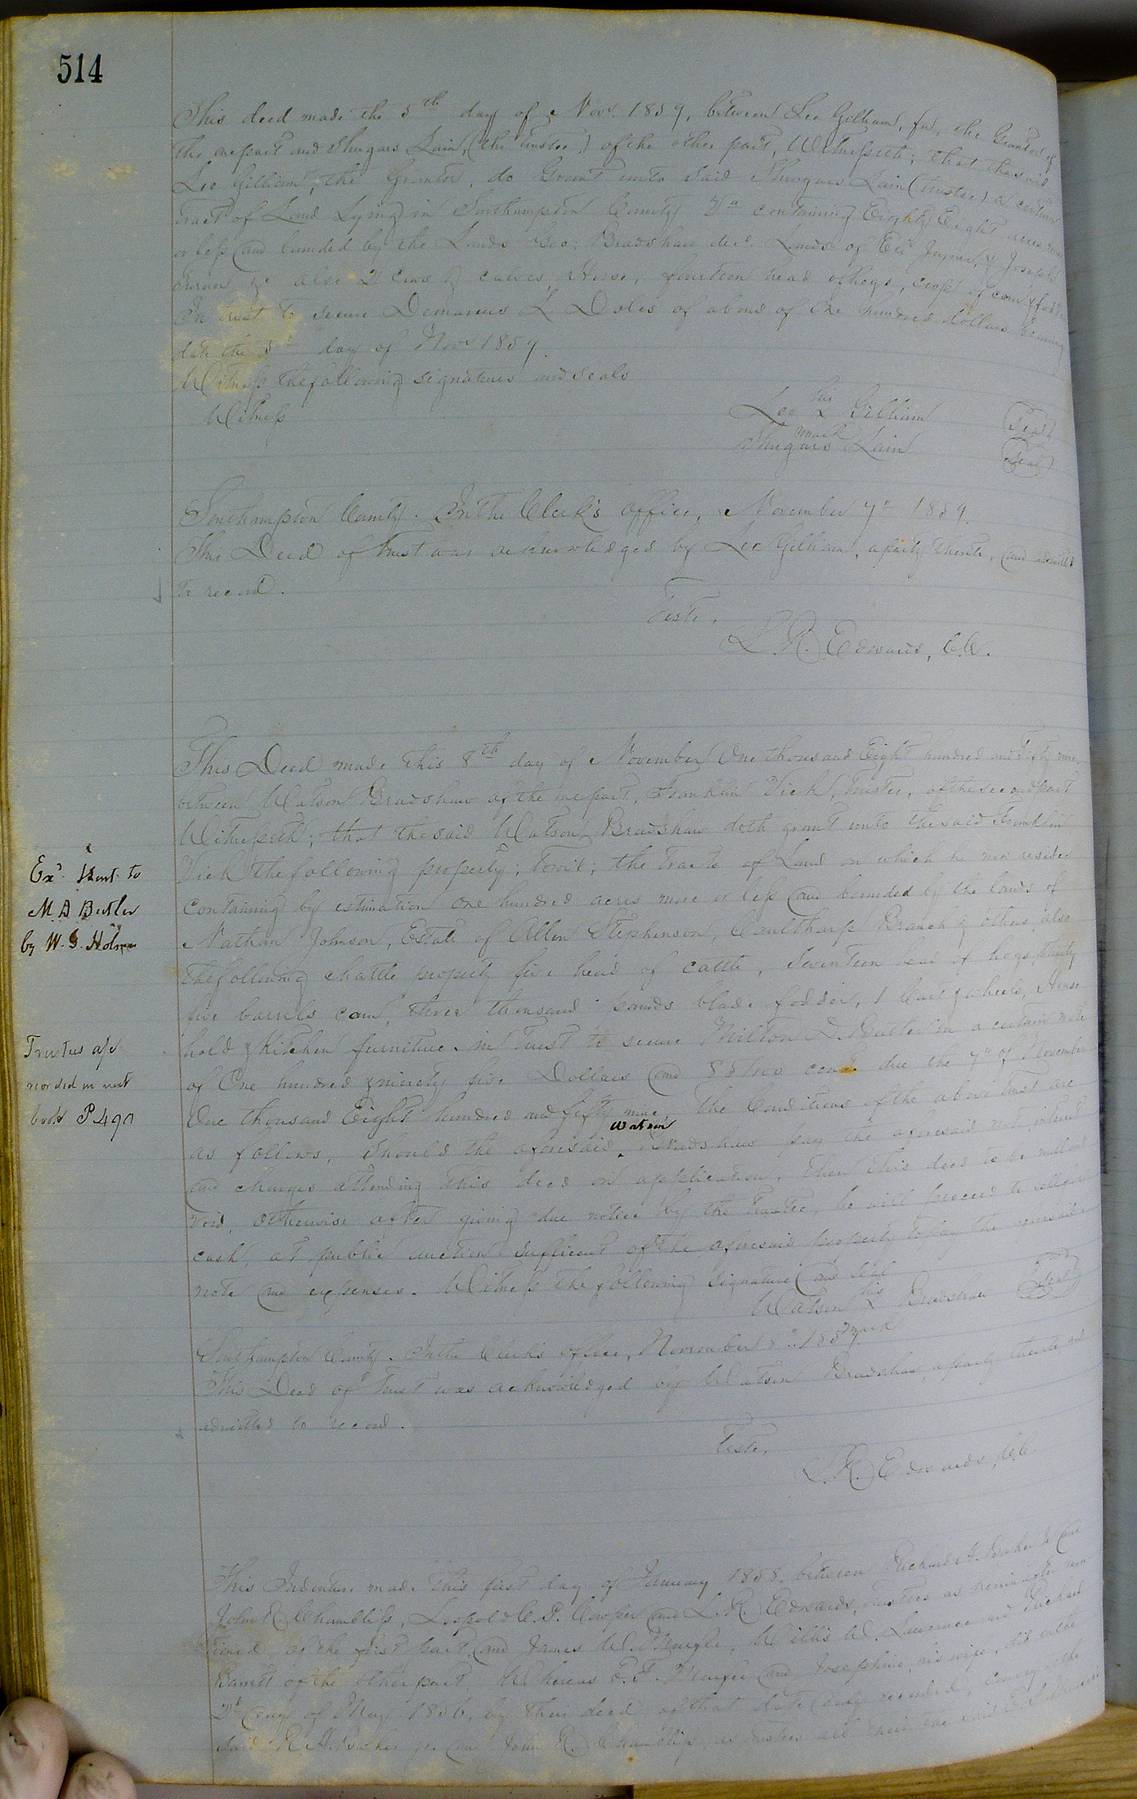 514
This deed made the 5th day of Novr 1859, between Lee Gilliam, fn, the Grantor of
the onepart and Shugars Lain, (the Trustee) of the other part, Witnesseth; that the said
Lee Gilliam, the Grantor, do Grant unto Said Shugars Lain (Trustee) a certain
Tract of Land Lying in Southampton County Va containing Eighty Eight acres more
or less and bounded by the Lands Geo: Bradshaw decd Lands of Joseph
Turner also 2 cows & calves, Horse, fourteen head ofhogs, crops of corn & fodder
In trust to secure Demarcus L Doles of abond of One hundred dollars bearing
date the 5th day of Novr 1859.
Witness thefollowing signatures and seals
Witness
Lee his X mark Gilliam (Seal)
Shugars Lain (Seal)
Southampton County. In the Clerk's office, November 7th 1859.
This Deed of Trust was acknowledged by Lee Gilliam, aparty thereto, and admitted
to record.
Teste,
L. R. Edwards, C.C.
This Deed made this 8th day of November One thousand Eight hundred and Fifty nine
between Watson Bradshaw of the onepart, Franklin Vick, Trustee, ofthesecondpart
Witnesseth; that thesaid Watson Bradshaw doth grant unto thesaid Franklin
Vick thefollowing property, towit; the Tract of Land on which he now resides
Containing by estimation one hundred acres more or less and bounded by the lands of
Nathan Johnson, Estate of Allen Stephenson, Branch & others, also
thefollowing chattle property five head of cattle, Seventeen head of hogs, twenty
five barrels corn, three thousand pounds blade fodder, 1 Cart & wheels, House
hold & Kitchen furniture. In Trust to secure Milton D. Butler in a certain note
of One hundred & ninety five Dollars and 85/100 cents due the 7th of November
One thousand Eight hundred and fifty nine, The Conditions of the above trust are
as follows, Should the aforesaid Watson Bradshaw pay the aforesaid note, interest
and charges attending this deed on application, then this deed to be null and
void, otherwise after giving due notice by the Trustee, he will proceed to sell for
cash, at public auction Sufficient of the aforesaid property to pay the aforesaid
note and expenses. Witness the following Signature and seal
Watson his X mark Bradshaw (Seal)
Southampton County. In the Clerk's office, November 8th 1859.
This Deed of Trust was acknowledged by Watson Bradshaw, aparty thereto and
admitted to record.
Teste,
L. R. Edwards, C.C.
Exd. & sent to
M. D Butler
by W. J. Holmes
Trustees a/c
recorded in
book P 490
This Indenture made This first day of January 1858, between Richard H. Jr and
John R. Chambliss, Leopold C. P. Cowper and L. R. Edwards, Trustees as hereinafter men
tioned, of the first part, and James W. Murfee, Willis W. Lawrence and Richard
Barrett of the other part, Whereas and Josephine, his wife, did on the
day of May 1856, by their deed, of that date duly recorded, convey to the
said Jr. and John R. Chambliss, as trustees all their the said